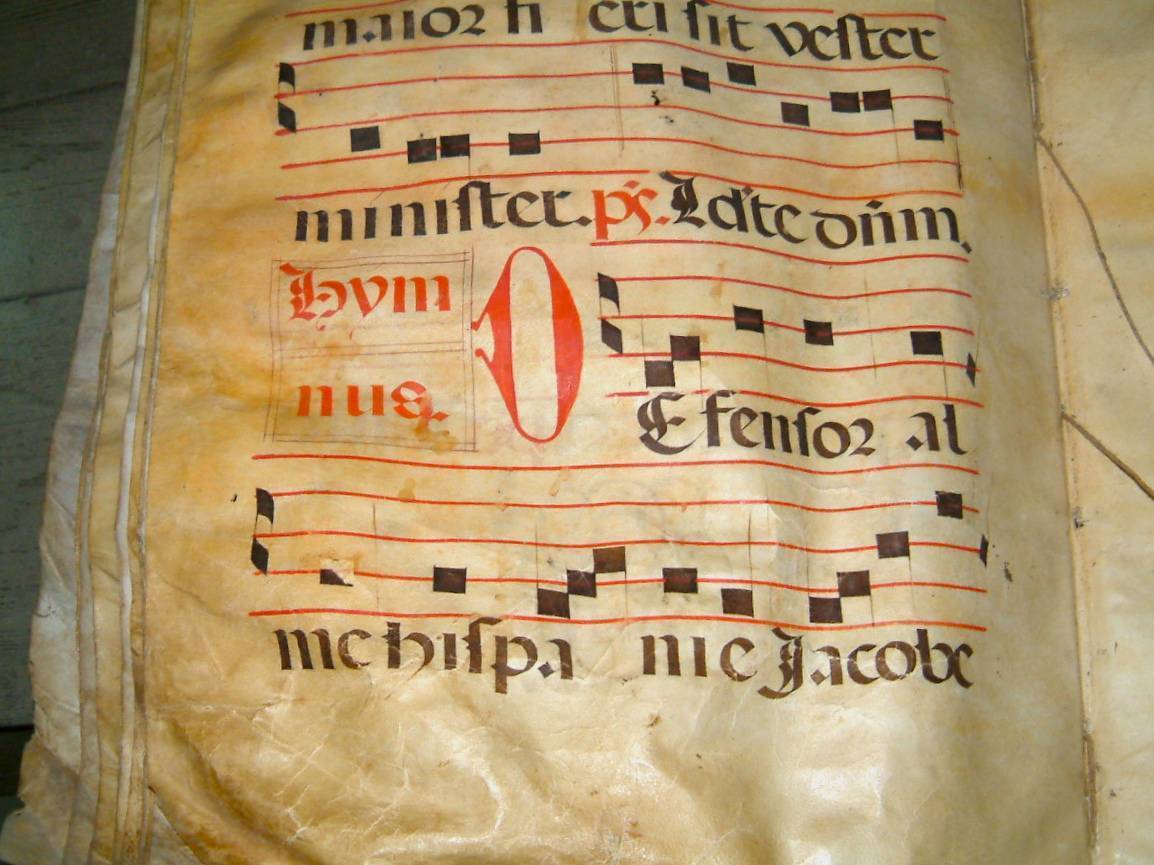 maior fi eri sit vester
minister. ps. Ld'te dñm.
Hym D
nus.
Efensor al
me hispa nie Jacobe